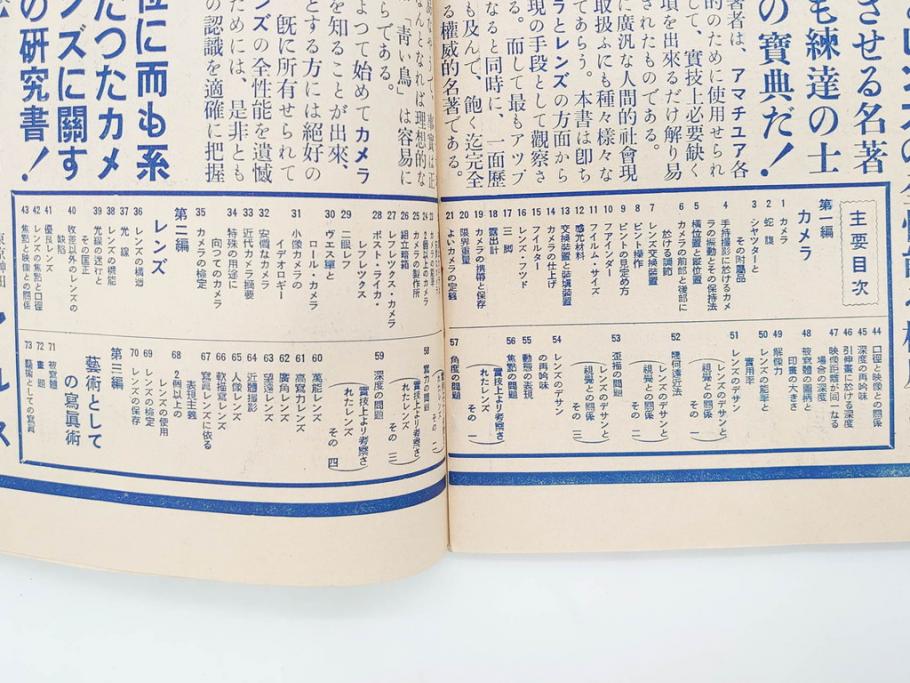 させる名著
も練達の士
の寶典だ！
著者は、アマチュア各
的のために使用せられ
して、實技上必要缺く
項を出來るだけ解り易
されたものである。
に廣況な人間的社會現
取扱ふにも種々様々な
であらう。本書は卽ち
ラとレンズの方面から
現の手段として觀察さ
る。而して最もアップ
なると同時に、一面歷
も及んで、飽く迄完全
る權威的名著である。
なんとなれば理想的な
「靑い鳥」は容易に
らである。
よつて始めてカメラ
を知ることが出來、
とする方には絕好の
、旣に所有せられて
ンズの全性能を遺憾
ためには、是非とも
の認識を適確に把握
位に而も系
たつたカメ
ンズに關す
の硏究書！
主要目次
第一編
カメラ
1 カメラ
2 蛇腹
3 シヤツターと
その附屬品
4 手持撮影に於けるカメ
ラの振動とその保持法
5 橫位置と縱位置
6 カメラの前部と後部に
於ける調節
7 レンズ交換裝置
8 ピント操作
9 ピントの見定め方
10 フアインダー
11 フイルム・サイズ
12 感光材料
13 交換裝置と裝塡裝置
14 カメラの仕上げ
15 フイルター
16 レンズ・フツド
17 三脚
18 露出計
19 カメラの携帶と保存
20 限界重量
21 よいカメラの定義
25 カメラの製作所
26 組立暗箱
27 レフレツクス・カメラ
28 ポスト・ライカ・
レフレツクス
29 二眼レフ
30 ヴエス單と
ロール・カメラ
31 小像カメラの
イデオロギー
32 安價なカメラ
33 近代カメラ摘要
34 特殊の用途に
向つてのカメラ
35 カメラの檢定
第二編
レンズ
36 レンズの構造
37 光線
38 レンズの機能
39 光線の逆行と
その匡正
40 收差以外のレンズの
缺陷
41 優良レンズ
42 レンズの焦點と口徑
43 焦點と映像との關係
44 口徑と映像との關係
45 深度の再吟味
46 引伸畫に於ける深度
47 映像距離が同一なる
場合の深度
48 被寫體の圖柄と
印畫の大きさ
49 解像力
50 レンズの能率と
實用率
51 レンズのデサン
（レンズのデサンと
視覺との關係 その一）
52 幾何遠近法
（レンズのデサンと
視覺との關係 その二）
53 歪描の問題
（レンズのデサンと
視覺との關係 その三）
54 レンズのデサン
の再吟味
55 動態の表現
56 焦點の問題
（實技上より考察さ
れたレンズ その一）
57 角度の問題
58 寫力の問題
（實技上より考察さ
れたレンズ その三）
59 深度の問題
（實技上より考察さ
れたレンズ その四）
60 萬能レンズ
61 高寫力レンズ
62 廣角レンズ
63 望遠レンズ
64 近體撮影
65 人像レンズ
66 軟描寫レンズ
67 寫眞レンズに依る
表現主義
68 2個以上の
レンズの使用
69 レンズの檢定
70 レンズの保存
第三編
藝術として
の寫眞術
71 被寫體
72 畫題
73 藝術としての寫眞
東京神田